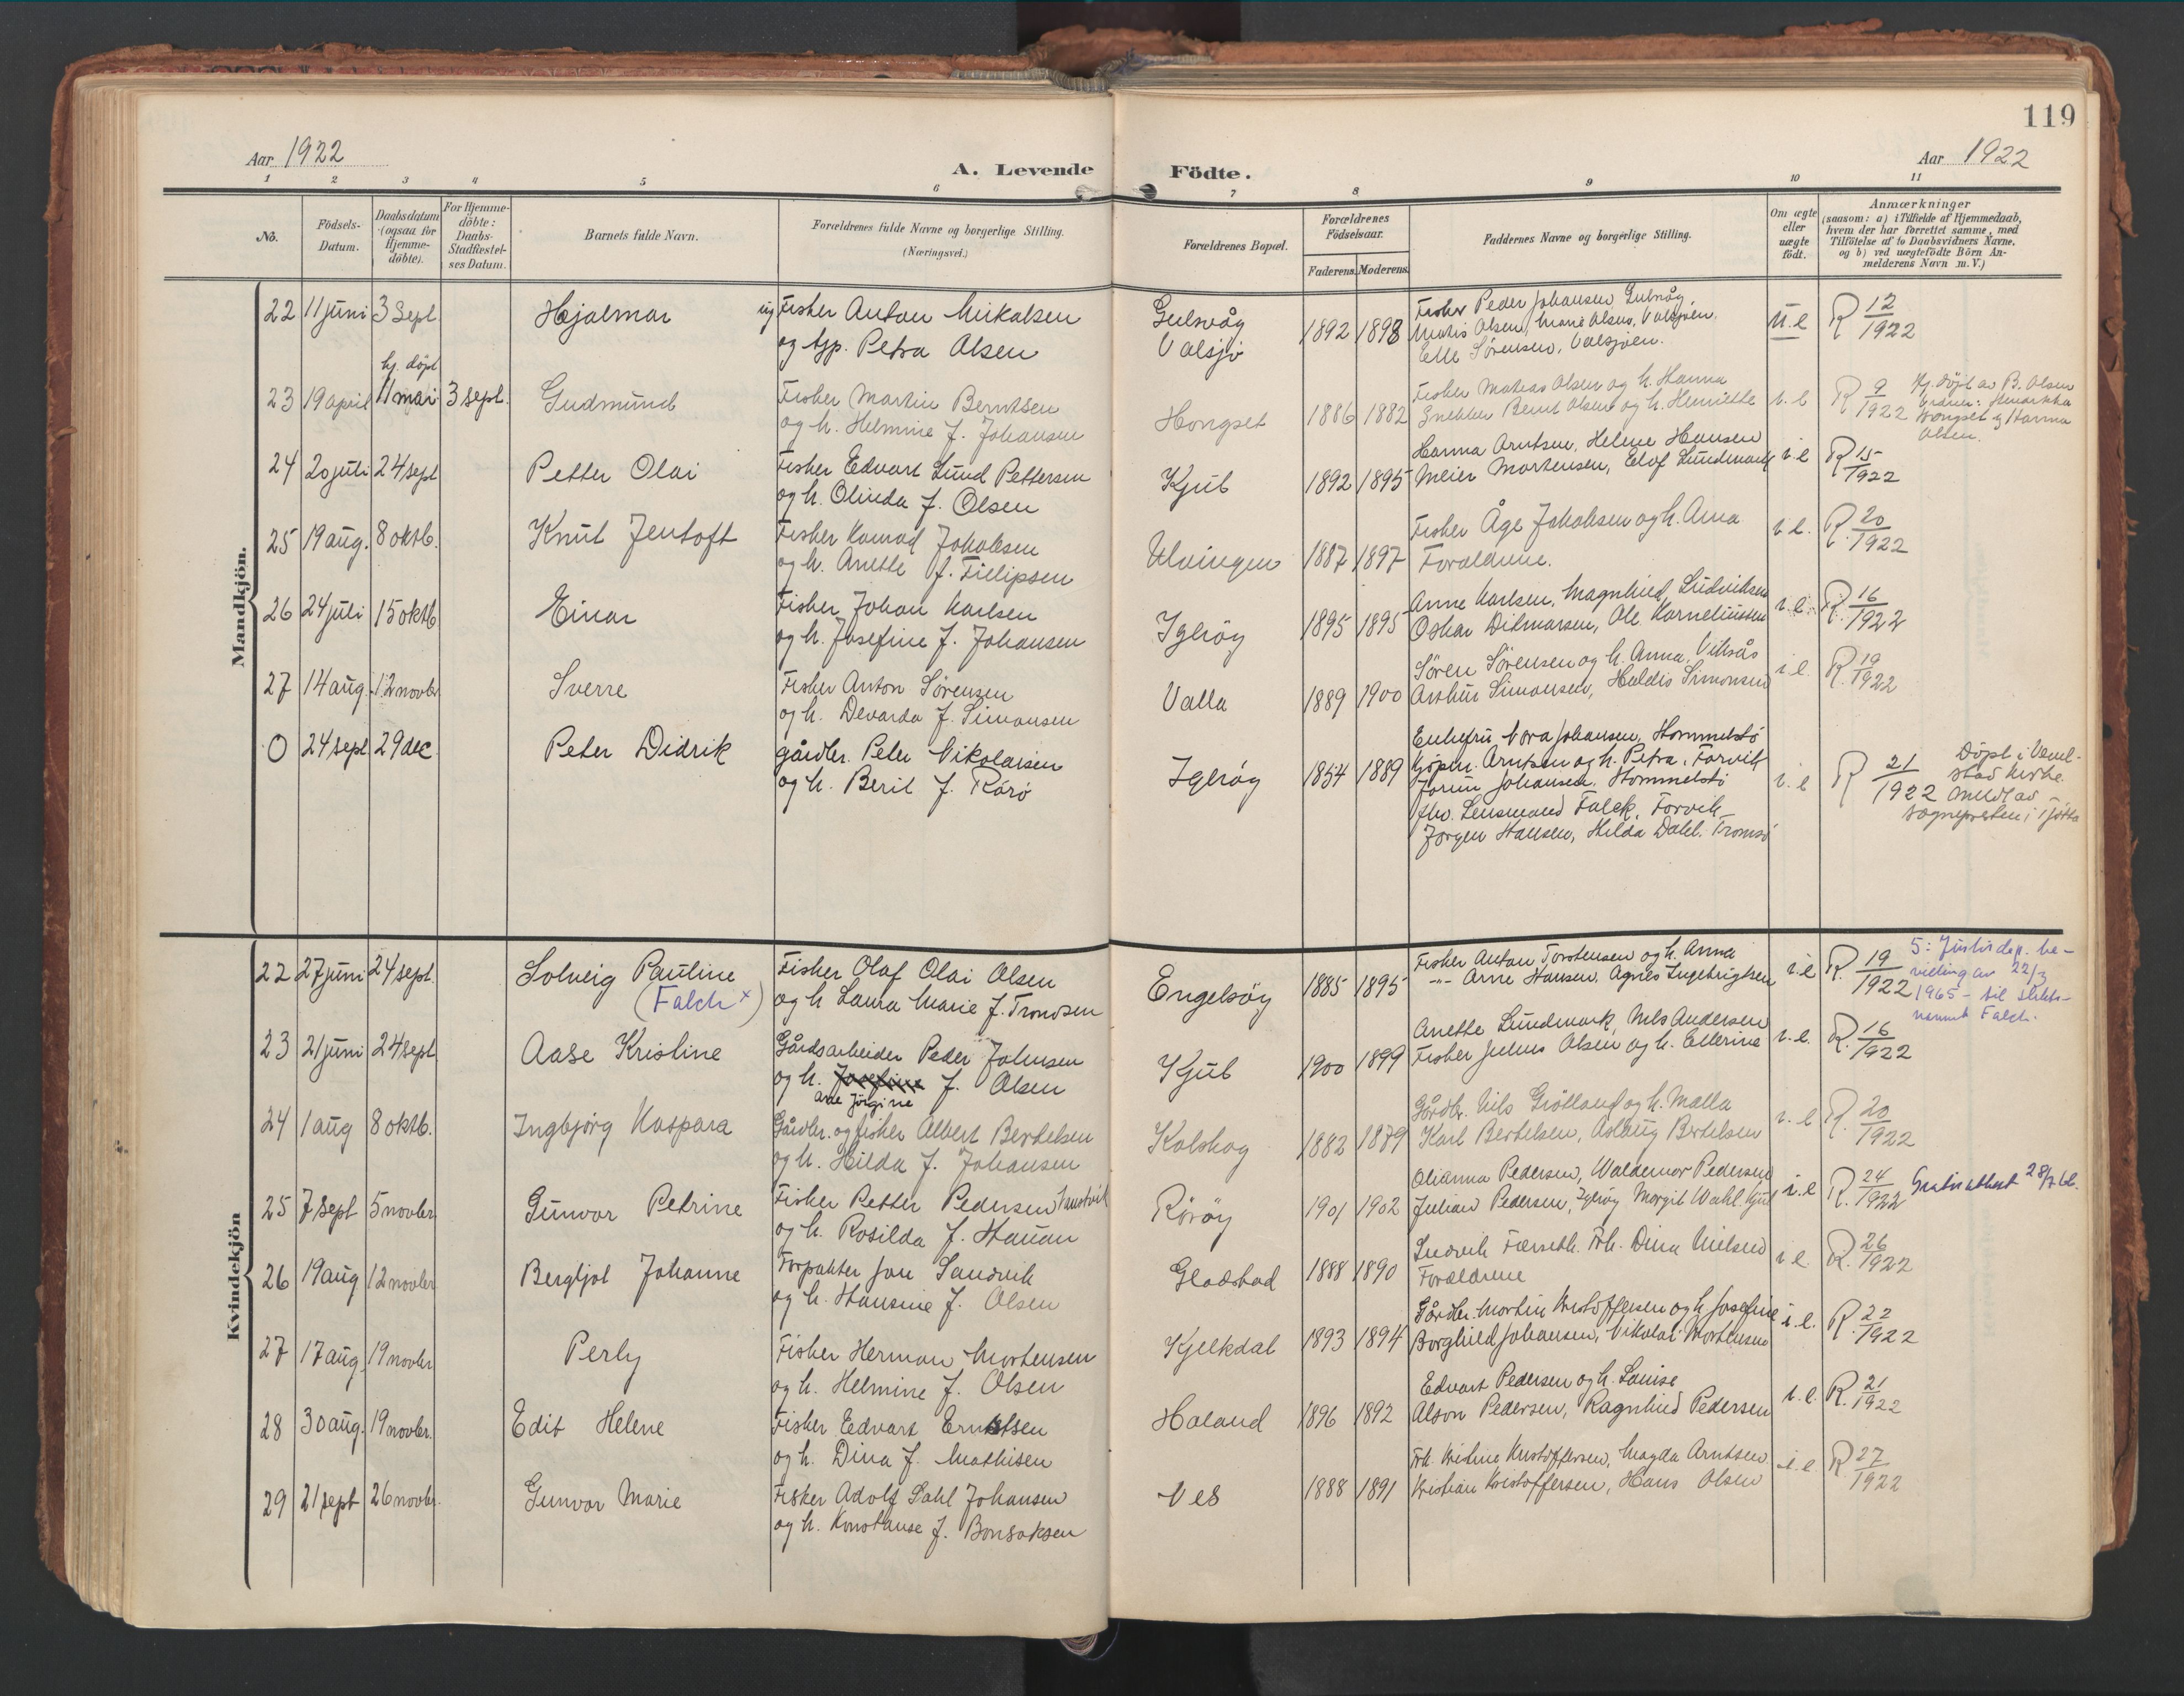 119
Aar 1922
A. Levende
Födte.
Aar 1922
1 2 3 4 5 6 7 8 9 10 11
No.
Födsels-
Datum.
Daabsdatum
(ogsaa for
Hjemme-
döbte).
For Hjemme-
döbte:
Daabs-
Stadfæstel-
ses Datum.
Barnets fulde Navn.
Forældrenes fulde Navne og borgerlige Stilling.
(Næringsvei.)
Forældrenes Bopæl.
Forældrenes
Födselsaar.
Faderens. Moderens.
Faddernes Navne og borgerlige Stilling.
Om ægte
eller
uægte
födt.
Anmærkninger
(saasom: a) i Tilfælde af Hjemmedaab,
hvem der har forrettet samme, med
Tilföielse af to Daabsvidners Navne,
og b) ved uægtefödte Börn An-
melderens Navn m. V.)
Mandkjön.
22 11 juni 3 Sept Hjalmar
ug Fisker Anton Mikalsen
og tjp. Petra Olsen
Gulsvåg
Valsjö
1892 1898
Fisker Peder Johansen Gulsvåg,
Matis Olsen, Marie Olsen, Valsjöen.
Elle Sörensen, Valsjöen.
u.e
R 12/1922
hj. döpt
23 19 april 11 mai 3 sept. Gudmund
Fisker Martin Berntsen
og h. Helmine f. Johansen
Hongset
1886 1882
Fisker Matias Olsen og h. Hanna
Snekker Bernt Olsen og h. Henriette
i.e
R 9/1922
Hj. döpt av B. Olsen
Hongset og Hanna
Olsen.
24 20 juli 24 sept Petter Olai
Fisker Edvart Lund Pettersen
og h. Olinda f. Olsen
Kjul
1892 1895
Hanna Arntsen, Helene Hansen
Meier Mortensen, Elof Lundmark
i.e
R 15/1922
25 19 aug. 8 oktb. Knut Jentoft
Fisker Konrad Jakobsen
og h. Anette f. Fillipsen
Ulvingen
1887 1897
Fisker Åge Jakobsen og h. Anna
Foraldrene.
i.e.
R 20/1922
26 24 juli 15 oktb Einar
Fisker Johan Karlsen
og h. Josefine f. Johansen
Igeröy
1895 1895
Anne Karlsen, Magnhild Ludviksen
Oskar Ditmarsen, Ole Korneliussen
i.e.
R. 16/1922
27 14 aug. 12 novbr Sverre
Fisker Anton Sörensen
og h. Devarda f. Simonsen
Valla
1889 1900
Sören Sörensen og h. Anna, Viksås
Arthur Simonsen, Haldis Simonsen
i.e.
R. 19/1922
0 24 sept 29 dec Peter Didrik
gårdbr. Peter Nikolaisen
og h. Beril f. Rörö
Igeröy
1854 1889
Enkefru Nora Johansen, Hommelstö
Kjöpm. Arntsen og h. Petra, Forvik
Jorun Johansen, Hommelstö
fhv. Lensmand Falck, Forvik
Jörgen Hansen, Hilda Dahl. Tromsö
i.e
R 21/1922
Döpt i Vevel-
stad kirke
meldt av
sognepresten i Tjötta
Kvindekjön
22 27 juni 24 sept. Solveig Pauline
(Falch x)
Fisker Olaf Olai Olsen
og h Laura Marie f. Trondsen
Engelsöy
1885 1895
Fisker Anton Torstensen og h. Anna
-"- Arne Hansen, Agnes Ingebrigtsen
i.e
R. 19/1922
5: Justisdep. be-
villing av 22/3
1965 - til slekts-
navnet Falch.
23 21 juni 24 sept Aase Kristine
Gårdsarbeider Peder Johnsen
og h. Josefine f. Olsen
Ane Jörgine
Kjul
1900 1899
Anette Lundmark, Nils Andersen
Fisker Julius Olsen og h. Ellerine
i.e.
R. 16/1922
24 1 aug 8 oktb. Ingbjörg Kaspara
Gårdbr. og fisker Albert Bertelsen
og h. Hilda f. Johansen
Kalskag
1882 1879
Gårdbr. Nils Grötland og h. Malla
Karl Bertelsen, Aslaug Bertelsen
i.e
R. 20/1922
25 7 sept 5 novbr Gunvor Petrine
Fisker Petter Pedersen
og h. Rosilda f. Hauan
Röröy
1901 1902
Olianna Pedersen, Waldemar Pedersen
Julian Pedersen, Igeröy Margit Wahl. Kjul
i.e
R. 24/1922
26 19 aug 12 novbr Bergljot Johanne
Forpakter Jon Sandvik
og h. Hansine f. Olsen
Gladstad
1888 1890
Ludvik Færseth. Frk. Dina Nielsen
Foraldrene
i.e.
R. 26/1922
27 17 aug. 19 novbr Perly
Fisker Herman Mortensen
og h. Helmine f. Olsen
Kjelkdal
1893 1894
Gårdbr. Martin Kristoffersen og h. Josefine
Borghild Johansen, Nikolai Mortensen
i.e.
R 22/1922
28 30 aug. 19 novbr. Edit Helene
Fisker Edvart Erntsen
og h. Dina f. Mathisen
Haland
1896 1892
Edvart Pedersen og h. Louise
Alson Pedersen, Ragnhild Pedersen
i.e.
R. 21/1922
29 21 sept 26 novbr. Gunvor Marie
Fisker Adolf Dahl Johansen
og h. Konstanse f. Bonsaksen
Ves
1888 1891
Frk. Kristine Kristoffersen, Magda Arntsen
Kristian Kristoffersen, Hans Olsen
i.e
R 27/1922